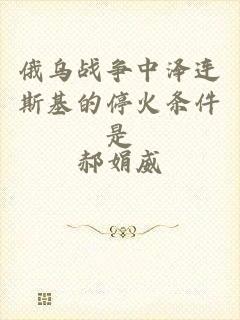 俄乌战争中泽连
斯基的停火条件
是
郝娟威